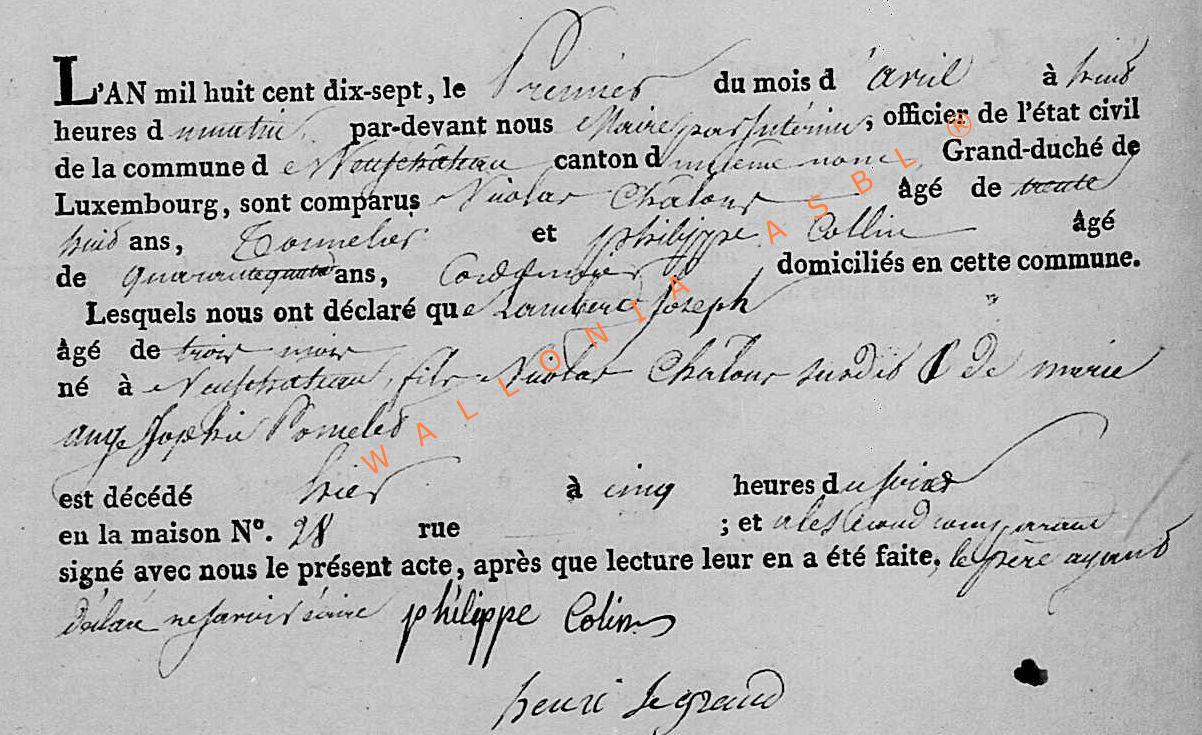 L'AN mil huit cent dix-sept, le Premier du mois d'avril à huit
heures du matin par-devant nous Maire par interim, officier de l'état civil
de la commune de Neufchâteau canton du même nom Grand-duché de
Luxembourg, sont comparus Nicolas Chalons âgé de trente
huit ans, Tonnelier et philippe Collin âgé
de quarante quatre ans, Cordonnier domiciliés en cette commune.
Lesquels nous ont déclaré que Lambert Joseph
âgé de trois mois
né à Neufchateau, fils Nicolas Chalons susdit & de marie
ange Sophie Pomeled
est décédé hier à cinq heures du soir
en la maison N°. 28 rue ; et a le second comparant
signé avec nous le présent acte, après que lecture leur en a été faite, le père ayant
déclaré ne savoir écrire philippe Colin
henri legrand
WALLONIA ASBL ®